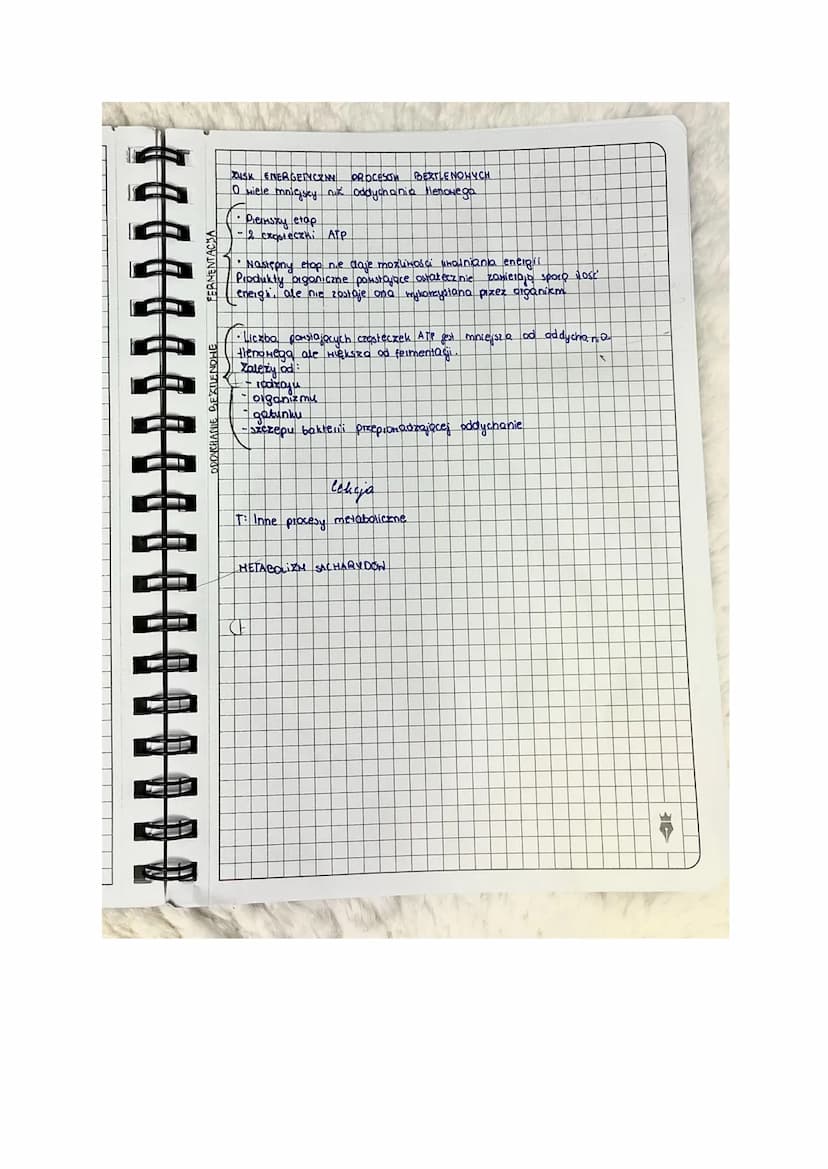 ZYSK ENERGETYCZNY PROCESÓW BEZTLENOWYCH
O wiele mniejszy niż oddychania tlenowego
FERMENTACJA
• Pierwszy etap
- 2 cząsteczki ATP
• Następny etap nie daje możliwości uwalniania energii
Produkty organiczne powstające ostatecznie zawierają sporą ilość
energii, ale nie zostaje ona wykorzystana przez organizm
ODDYCHANIE BEZTLENOWE
• Liczba powstających cząsteczek ATP jest mniejsza od oddychania
tlenowego ale większa od fermentacji.
Zależy od:
- rodzaju
- organizmu
- gatunku
- szczepu bakterii przeprowadzającej oddychanie
Lekcja
T: Inne procesy metaboliczne
METABOLIZM SACHARYDÓW